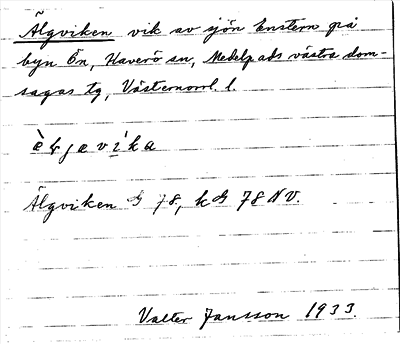 Älgviken vik av sjön Enstern på
byn Ön, Haverö sn, Medelpads västra dom-
sagas tg, Västernorrl. l.
èḷjavíka
Älgviken G 78, kG 78 NV.
Valter Jansson 1933.